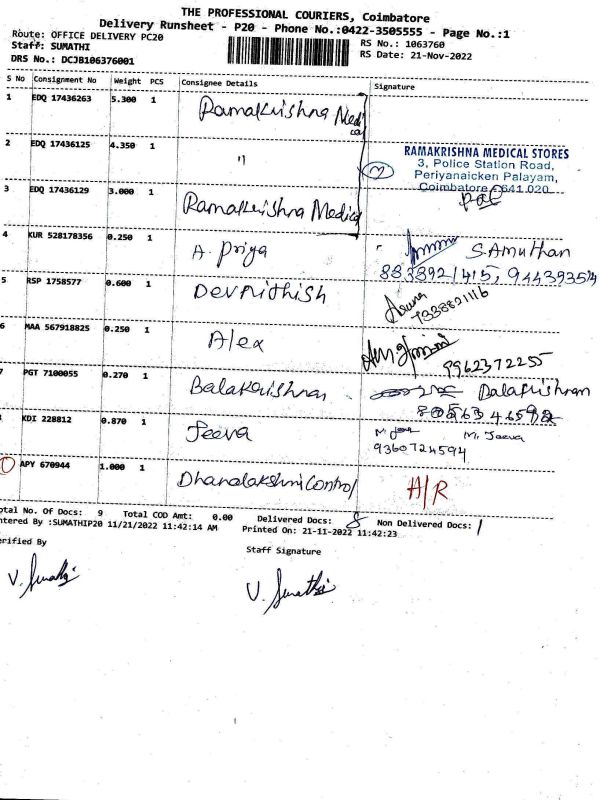 THE PROFESSIONAL COURIERS, Coimbatore
Delivery Runsheet - P20 - Phone No.:0422-3505555 - Page No.:1
Route: OFFICE DELIVERY PC20
RS No.: 1063760
Staff: SUMATHI
RS Date: 21-Nov-2022
DRS No.: DCJB106376001
S No Consignment No Weight PCS Consignee Details Signature
1 EDQ 17436263 5.300 1 Ramakrishna Medical
2 EDQ 17436125 4.350 1 "
RAMAKRISHNA MEDICAL STORES
3, Police Station Road,
Periyanaicken Palayam,
Coimbatore - 641 020
3 EDQ 17436129 3.000 1 Ramakrishna Medical
4 KUR 528178356 0.250 1 A. Priya S. Amuthan
5 RSP 1758577 0.600 1 DevNithish
7338821116
6 MAA 567918825 0.250 1 Alex
9962372255
7 PGT 7100055 0.270 1 Balakrishnan Balakrishnan
KDI 228812 0.870 1 Jeeva M. Jeeva
9360724594
APY 670944 1.000 1 Dhanalakshmi Control A/R
otal No. Of Docs: 9 Total COD Amt: 0.00 Delivered Docs: 8 Non Delivered Docs: 1
ntered By :SUMATHIP20 11/21/2022 11:42:14 AM Printed On: 21-11-2022 11:42:23
erified By Staff Signature
V. Sumathi V. Sumathi